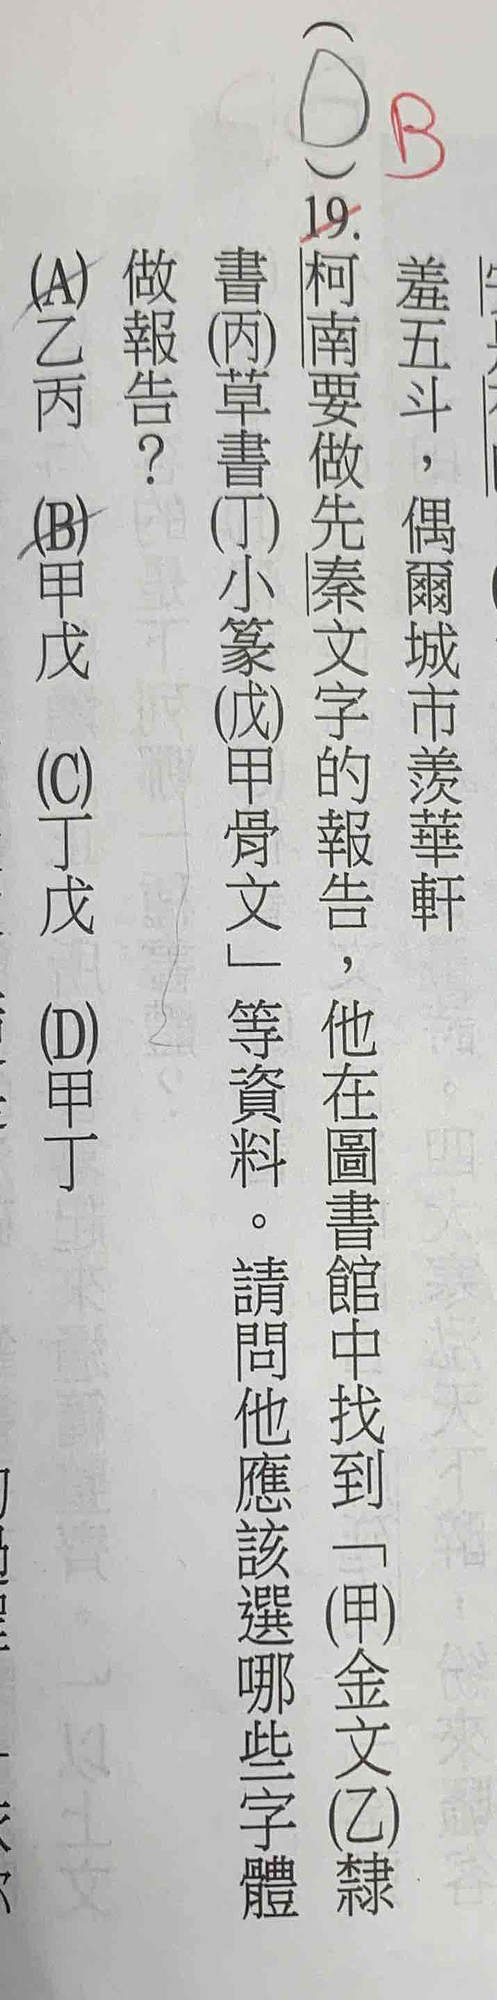 羞五斗，偶爾城市羨華軒
B
(D)19.柯南要做先秦文字的報告，他在圖書館中找到「(甲)金文(乙)隸
書(丙)草書(丁)小篆(戊)甲骨文」等資料。請問他應該選哪些字體
做報告？
(A)乙丙 (B)甲戊 (C)丁戊 (D)甲丁